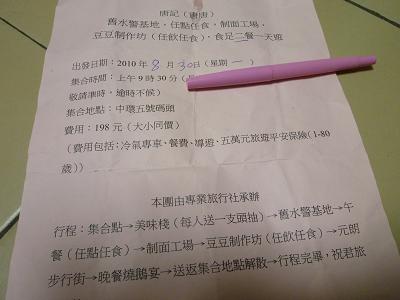 唐記(唐唐)
舊水警基地,任點任食,制面工場,
豆豆制作坊(任飲任食),食足二餐一天遊
出發日期:2010年8月30日(星期一)
集合時間:上午9時30分(
敬請準時,逾時不候)
集合地點:中環五號碼頭
費用:198元(大小同價)
(費用包括:冷氣專車、餐費、導遊、五萬元旅遊平安保險(1-80
歲))
本團由專業旅行社承辦
行程:集合點→美味棧(每人送一支頭抽)→舊水警基地→午
餐(任點任食)→制面工場→豆豆制作坊(任飲任食)→元朗
步行街→晚餐燒鵝宴→送返集合地點解散→行程完畢,祝君旅